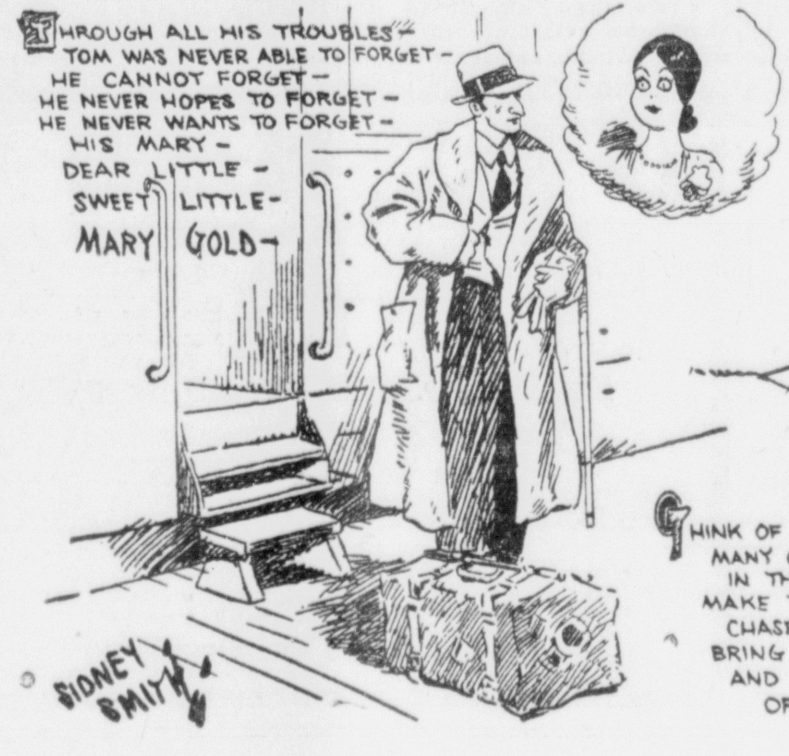 THROUGH ALL HIS TROUBLES—
TOM WAS NEVER ABLE TO FORGET—
HE CANNOT FORGET—
HE NEVER HOPES TO FORGET—
HE NEVER WANTS TO FORGET—
HIS MARY—
DEAR LITTLE—
SWEET LITTLE—
MARY GOLD—
THINK OF
MANY
IN TH
MAKE
CHASE
BRING
AND
OF
SIDNEY
SMITH